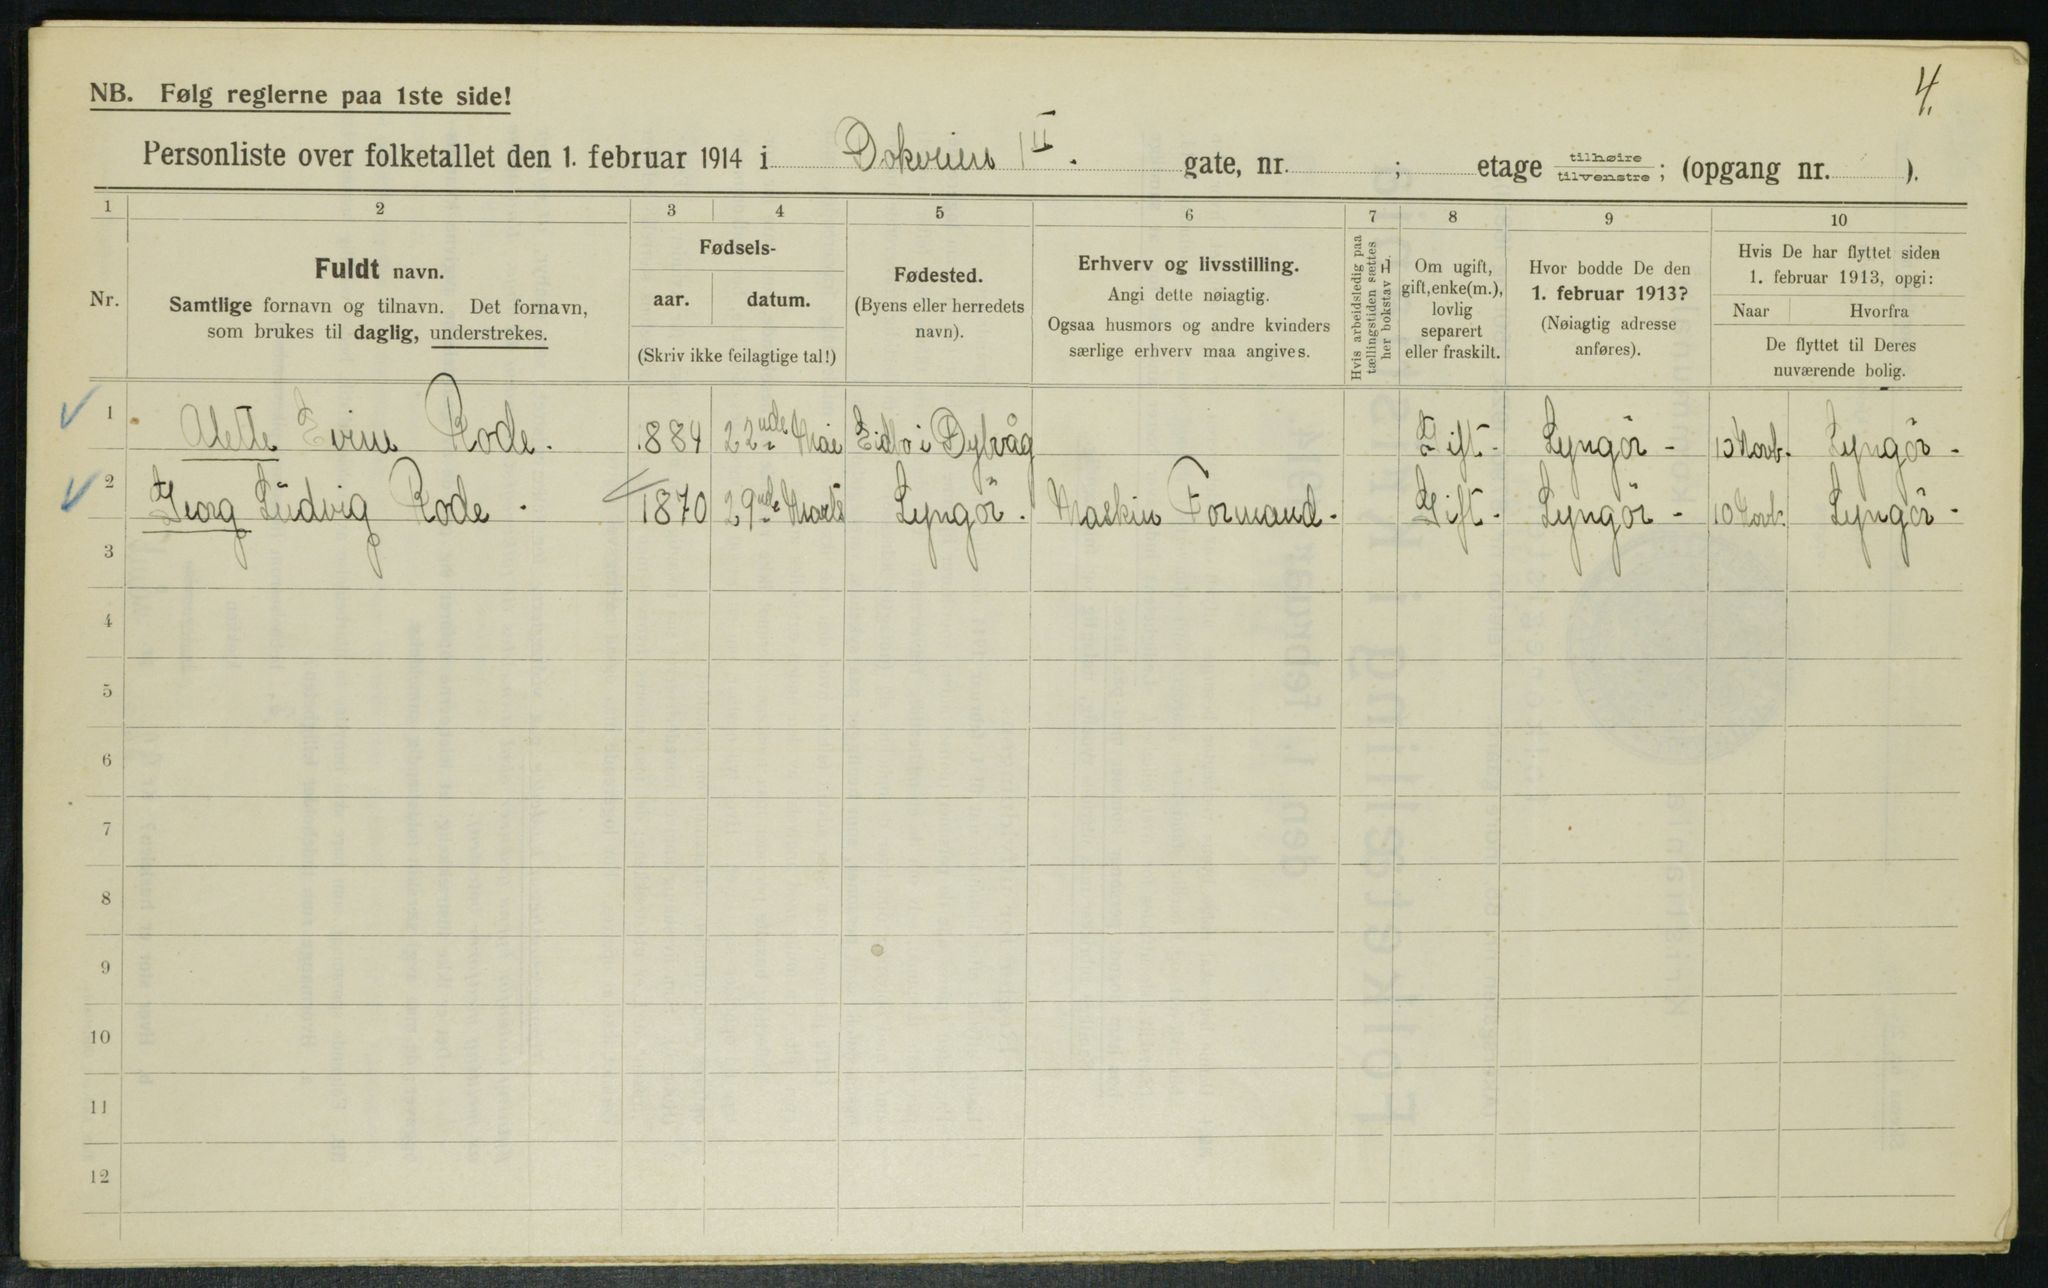 4.
NB. Følg reglerne paa 1ste side!
Personliste over folketallet den 1. februar 1914 i Dokveien 1 II. gate, nr. ; etage tilhøire tilvenstre; (opgang nr. ).
1 2 3 4 5 6 7 8 9 10
Nr.
Fuldt navn.
Samtlige fornavn og tilnavn. Det fornavn,
som brukes til daglig, understrekes.
Fødsels-
aar. datum.
(Skriv ikke feilagtige tal!)
Fødested.
(Byens eller herredets
navn).
Erhverv og livsstilling.
Angi dette nøiagtig.
Ogsaa husmors og andre kvinders
særlige erhverv maa angives.
Hvis arbeidsledig paa
tællingstiden sættes
her bokstav L
Om ugift,
gift, enke(m.),
lovlig
separert
eller fraskilt.
Hvor bodde De den
1. februar 1913?
(Nøiagtig adresse
anføres).
Hvis De har flyttet siden
1. februar 1913, opgi:
Naar Hvorfra
De flyttet til Deres
nuværende bolig.
1 Alette Evine Rode. 1884 22nde Mai Eidbo i Dybvåg Gift. Lyngör - 10 Novb. Lyngör -
2 Georg Ludvig Rode. 1870 29nde Marts Lyngör. Maskin Formand. Gift. Lyngör - 10 Novb. Lyngör -
3
4
5
6
7
8
9
10
11
12